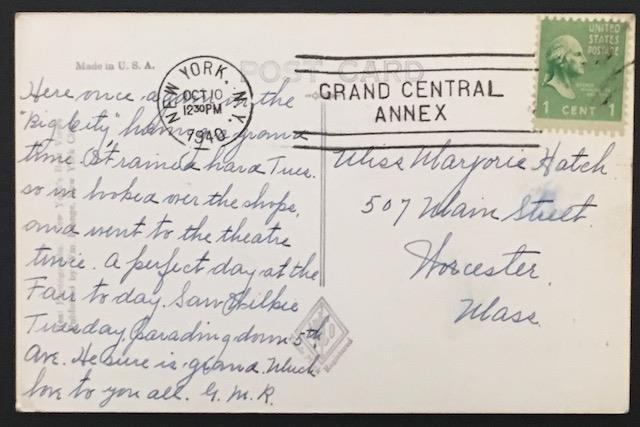 Made in U. S. A.
POST CARD
NEW YORK, N.Y.
OCT 10
1230 PM
1940
GRAND CENTRAL
ANNEX
UNITED
STATES
POSTAGE
1 CENT 1
Here once again in the
"Big City" having a grand
time. It rained hard Tues.
so we looked over the shops,
and went to the theatre
twice. A perfect day at the
Fair to day. Saw Wilkie
Tuesday, parading down 5th
Ave. He sure is grand. Much
love to you all. G. M. R.
Miss Marjorie Hatch
507 Main Street.
Worcester.
Mass.